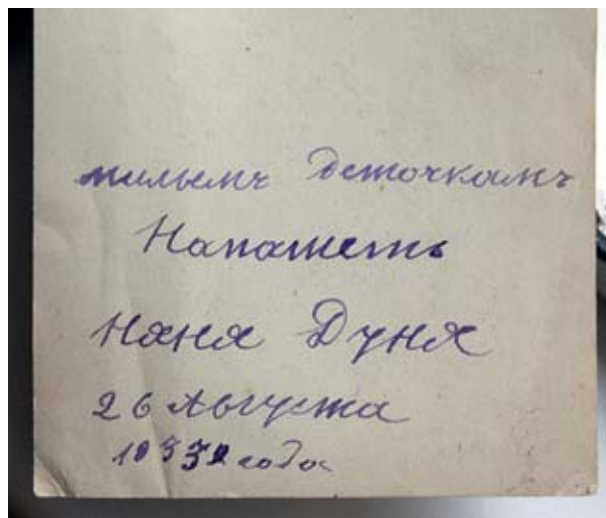 милымъ деточкамъ
Напаметь
няня Дуня
26 Августа
года